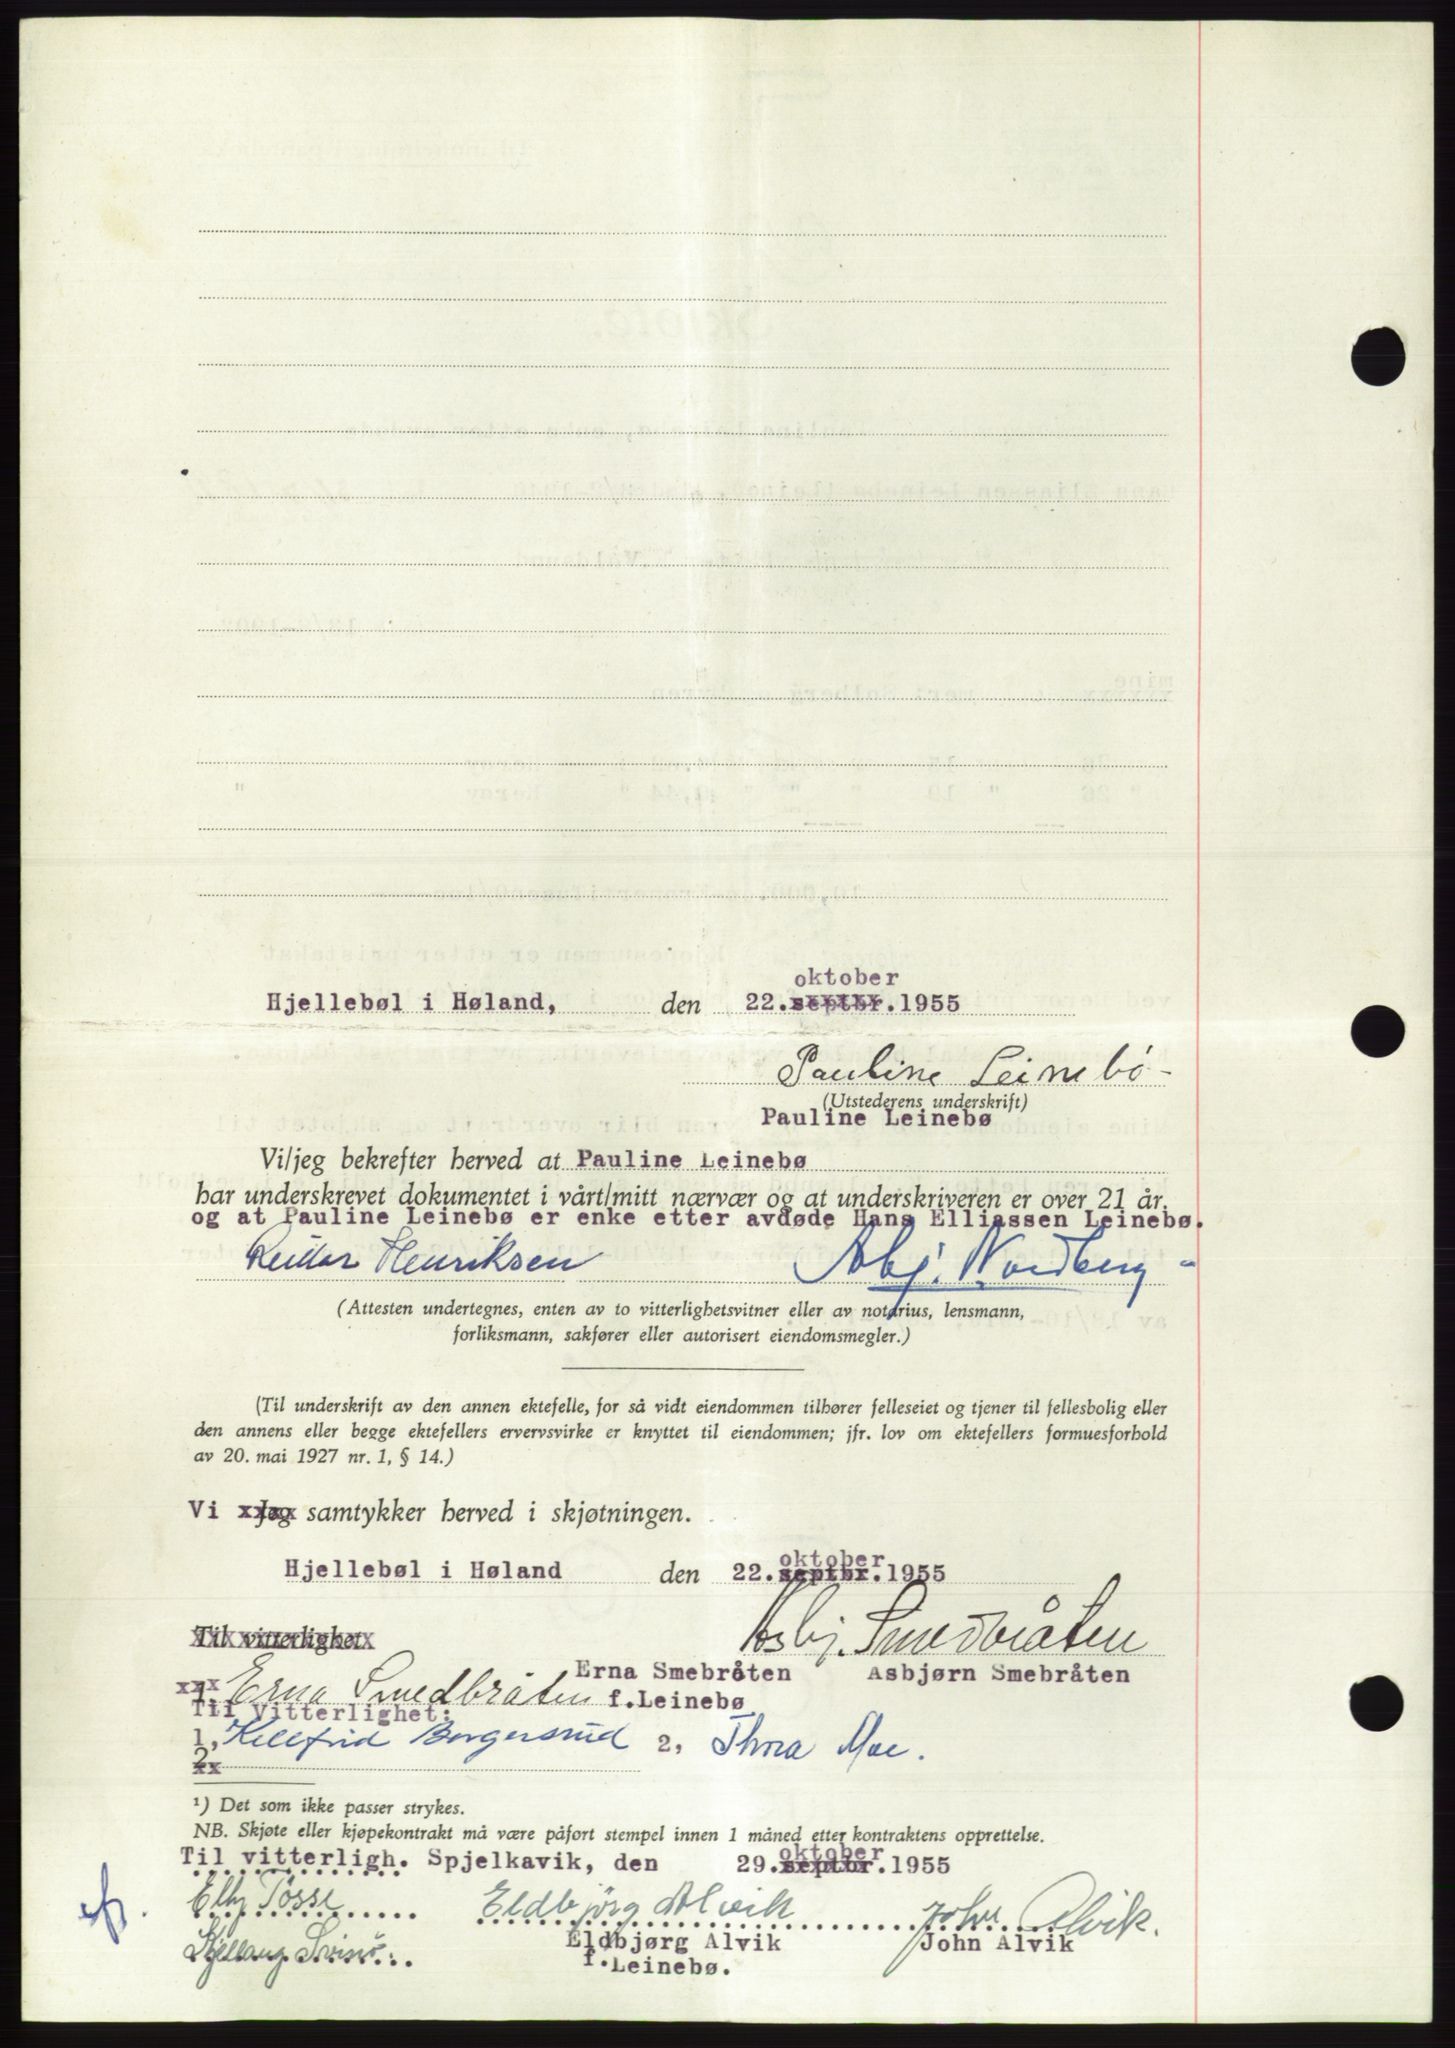 oktober
Hjellebøl i Høland, den 22.septbr.1955
Pauline Leinebø
(Utstederens underskrift)
Pauline Leinebø
Vi/jeg bekrefter herved at Pauline Leinebø
har underskrevet dokumentet i vårt/mitt nærvær og at underskriveren er over 21 år.
og at Pauline Leinebø er enke etter avdøde Hans Elliassen Leinebø.
Reidar Henriksen Asbj. Nordberg
(Attesten undertegnes, enten av to vitterlighetsvitner eller av notarius, lensmann,
forliksmann, sakfører eller autorisert eiendomsmegler.)
(Til underskrift av den annen ektefelle, for så vidt eiendommen tilhører felleseiet og tjener til fellesbolig eller
den annens eller begge ektefellers ervervsvirke er knyttet til eiendommen; jfr. lov om ektefellers formuesforhold
av 20. mai 1927 nr. 1, § 14.)
Vi Jeg samtykker herved i skjøtningen.
oktober
Hjellebøl i Høland den 22.septbr.1955
Til vitterlighet
Asbj. Smedbråten
Erna Smebråten Asbjørn Smebråten
1. Erna Smedbråten f.Leinebø
Til Vitterlighet:
1, Borgersrud 2, Thora Moe.
2
¹) Det som ikke passer strykes.
NB. Skjøte eller kjøpekontrakt må være påført stempel innen 1 måned etter kontraktens opprettelse.
oktober
Til vitterligh. Spjelkavik, den 29.septbr.1955
Elly Tøsse Eldbjörg Alvik John Alvik.
Eldbjørg Alvik John Alvik
f.Leinebø.